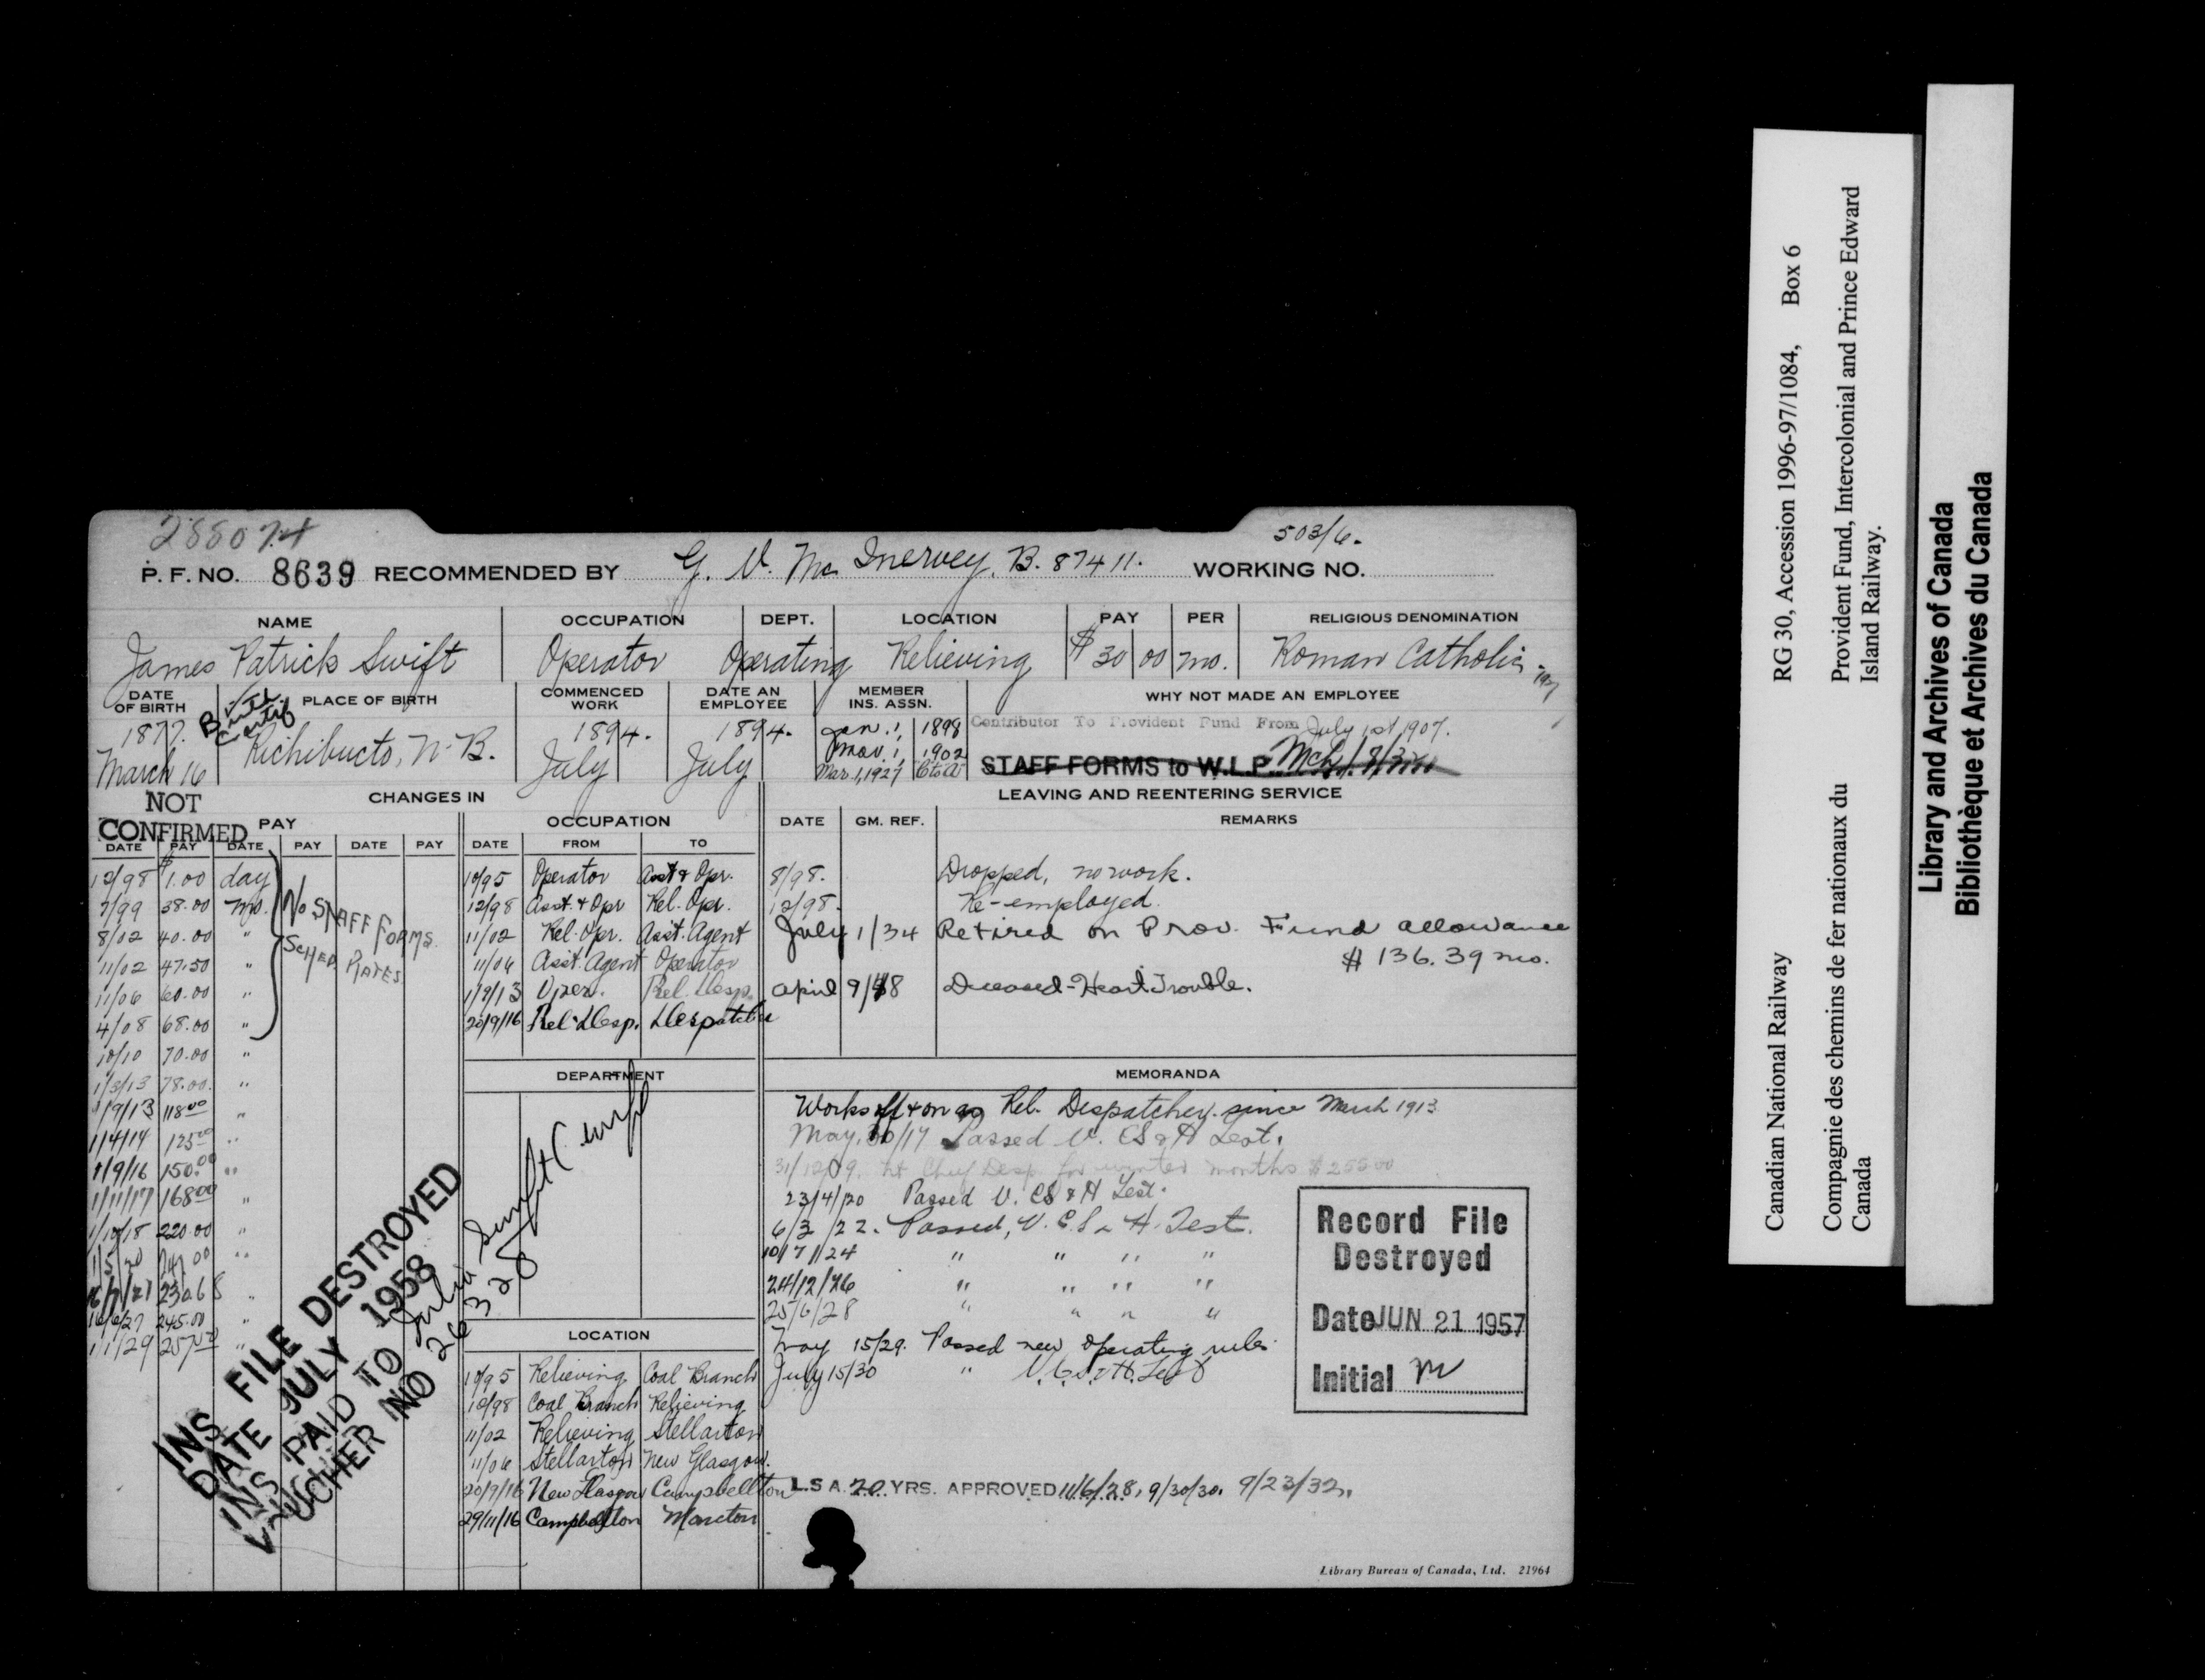 288074
503/6.
P. F. NO. 8639 RECOMMENDED BY G. V. Mc Inervey. B. 87411. WORKING NO.
NAME OCCUPATION DEPT. LOCATION PAY PER RELIGIOUS DENOMINATION
James Patrick Swift Operator Operating Relieving $ 30 00 mo. Roman Catholic
DATE OF BIRTH PLACE OF BIRTH COMMENCED WORK DATE AN EMPLOYEE MEMBER INS. ASSN. WHY NOT MADE AN EMPLOYEE
Birth Certif
1877. Richibucto, N-B. 1894. 1894. Jan. 1, 1898 Contributor To Provident Fund From July 1st 1907.
March 16 July July Nov. 1, 1902 STAFF FORMS to W.L.P.
Mar 1, 1927 C to A
NOT CONFIRMED
CHANGES IN
LEAVING AND REENTERING SERVICE
PAY
DATE PAY DATE PAY DATE PAY
12/98 $1.00 day
7/99 38.00 mo.
8/02 40.00 "
11/02 47.50 "
11/06 60.00 "
4/08 68.00 "
10/10 70.00 "
1/3/13 78.00 "
1/9/13 118 00 "
1/4/14 125 00 "
1/9/16 150.00 "
1/11/17 168 00 "
1/10/18 220.00 "
1/5/20 247 00 "
16/7/21 230.68 "
16/6/27 245.00 "
1/1/29 257 "
No STAFF FORMS
SCHED RATES
OCCUPATION
DATE FROM TO
10/95 Operator Asst & Opr.
12/98 Asst. & Opr Rel. Opr.
11/02 Rel. Opr. Asst. Agent
11/06 Asst. Agent Operator
1/9/13 Oper. Rel. Desp.
20/9/16 Rel. Desp. Despatcher
DATE GM. REF. REMARKS
8/98. Dropped, no work.
12/98. Re-employed.
July 1/34 Retired on Prov. Fund allowance
$ 136.39 mo.
April 9/48 Deceased - Heart Trouble.
DEPARTMENT
LOCATION
10/95 Relieving Coal Branch
10/98 Coal Branch Relieving
11/02 Relieving Stellarton
11/06 Stellarton New Glasgow.
20/9/16 New Glasgow Campbellton
29/11/16 Campbellton Moncton
MEMORANDA
Works off & on as Rel. Despatcher since March 1913
May, 30/17 Passed V. CS & H Test.
31/12/09. Chief Desp. for winter months $255 00
23/4/20 Passed V. CS & H Test.
6/3/22. Passed, V. C.S & H. Test.
10/7/24 " " " "
24/12/26 " " " "
25/6/28 " " " "
May 15/29. Passed new operating rules
July 15/30 " V. C.S & H. Test
L.S A. 20 YRS. APPROVED 11/6/28, 9/30/30. 9/23/32.
Record File
Destroyed
Date JUN 21 1957
Initial
INS FILE DESTROYED
DATE JULY 1958
INS PAID TO Julia Swift (wife)
VOUCHER NO 26328
Library Bureau of Canada, Ltd. 21964
Canadian National Railway RG 30, Accession 1996-97/1084, Box 6
Compagnie des chemins de fer nationaux du Canada
Provident Fund, Intercolonial and Prince Edward Island Railway.
Library and Archives of Canada
Bibliothèque et Archives du Canada